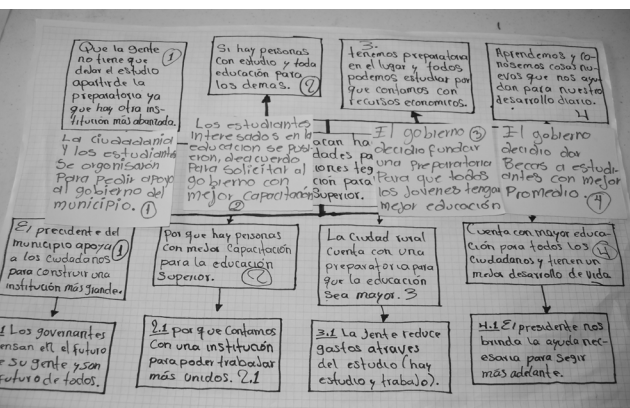 Que la gente
no tiene que
dejar el estudio
apartir de la
preparatoria ya
que hay otra ins-
titución más abanzada.
1
Si hay personas
con estudio y toda
educación para
los demas. 2
3.
tenemos preparatoria
en el lugar y todos
podemos estudiar por
que contamos con
recursos economicos.
Aprendemos y co-
nosemos cosas nu-
evas que nos ayu
dan para nuestro
desarrollo diario.
4
La ciudadania
y los estudiantes
Se organisaron
Para Pedir apoyo
al gobierno del
municipio. 1
Los estudiantes
interesados en la
educacion se pusi-
eron, deacuerdo
Para Solicitar al
gobierno con
mejor capacitación
2
aran ha
dades pa
iones teg
ción para
Superior.
El gobierno 3
decidio fundar
una Preparatoria
Para que todos
los Jovenes tengan
mejor educación
El gobierno
decidio dar
Becas a estudi-
antes con mejor
Promedio. 4
El precidente del
municipio apoya 1
a los Ciudadanos
para construir una
institución más grande.
Por que hay personas
con mejor Capacitación
para la educación
Superior. 2
La Ciudad rural
Cuenta con una
preparatoria para
que la educación
Sea mayor. 3
Cuenta con mayor educa-
ción para todos los 4
Ciudadanos y tienen un
mejor desarrollo de vida.
1 Los governantes
ensan en el futuro
e su gente y son
futuro de todos.
2.1 por que Contamos
Con una institución
para poder trabajar
más unidos. 2.1
3.1 La Jente reduce
gastos atraves
del estudio (hay
estudio y trabajo).
4.1 El presidente nos
brinda la ayuda nec-
esaria para segir
más adelante.